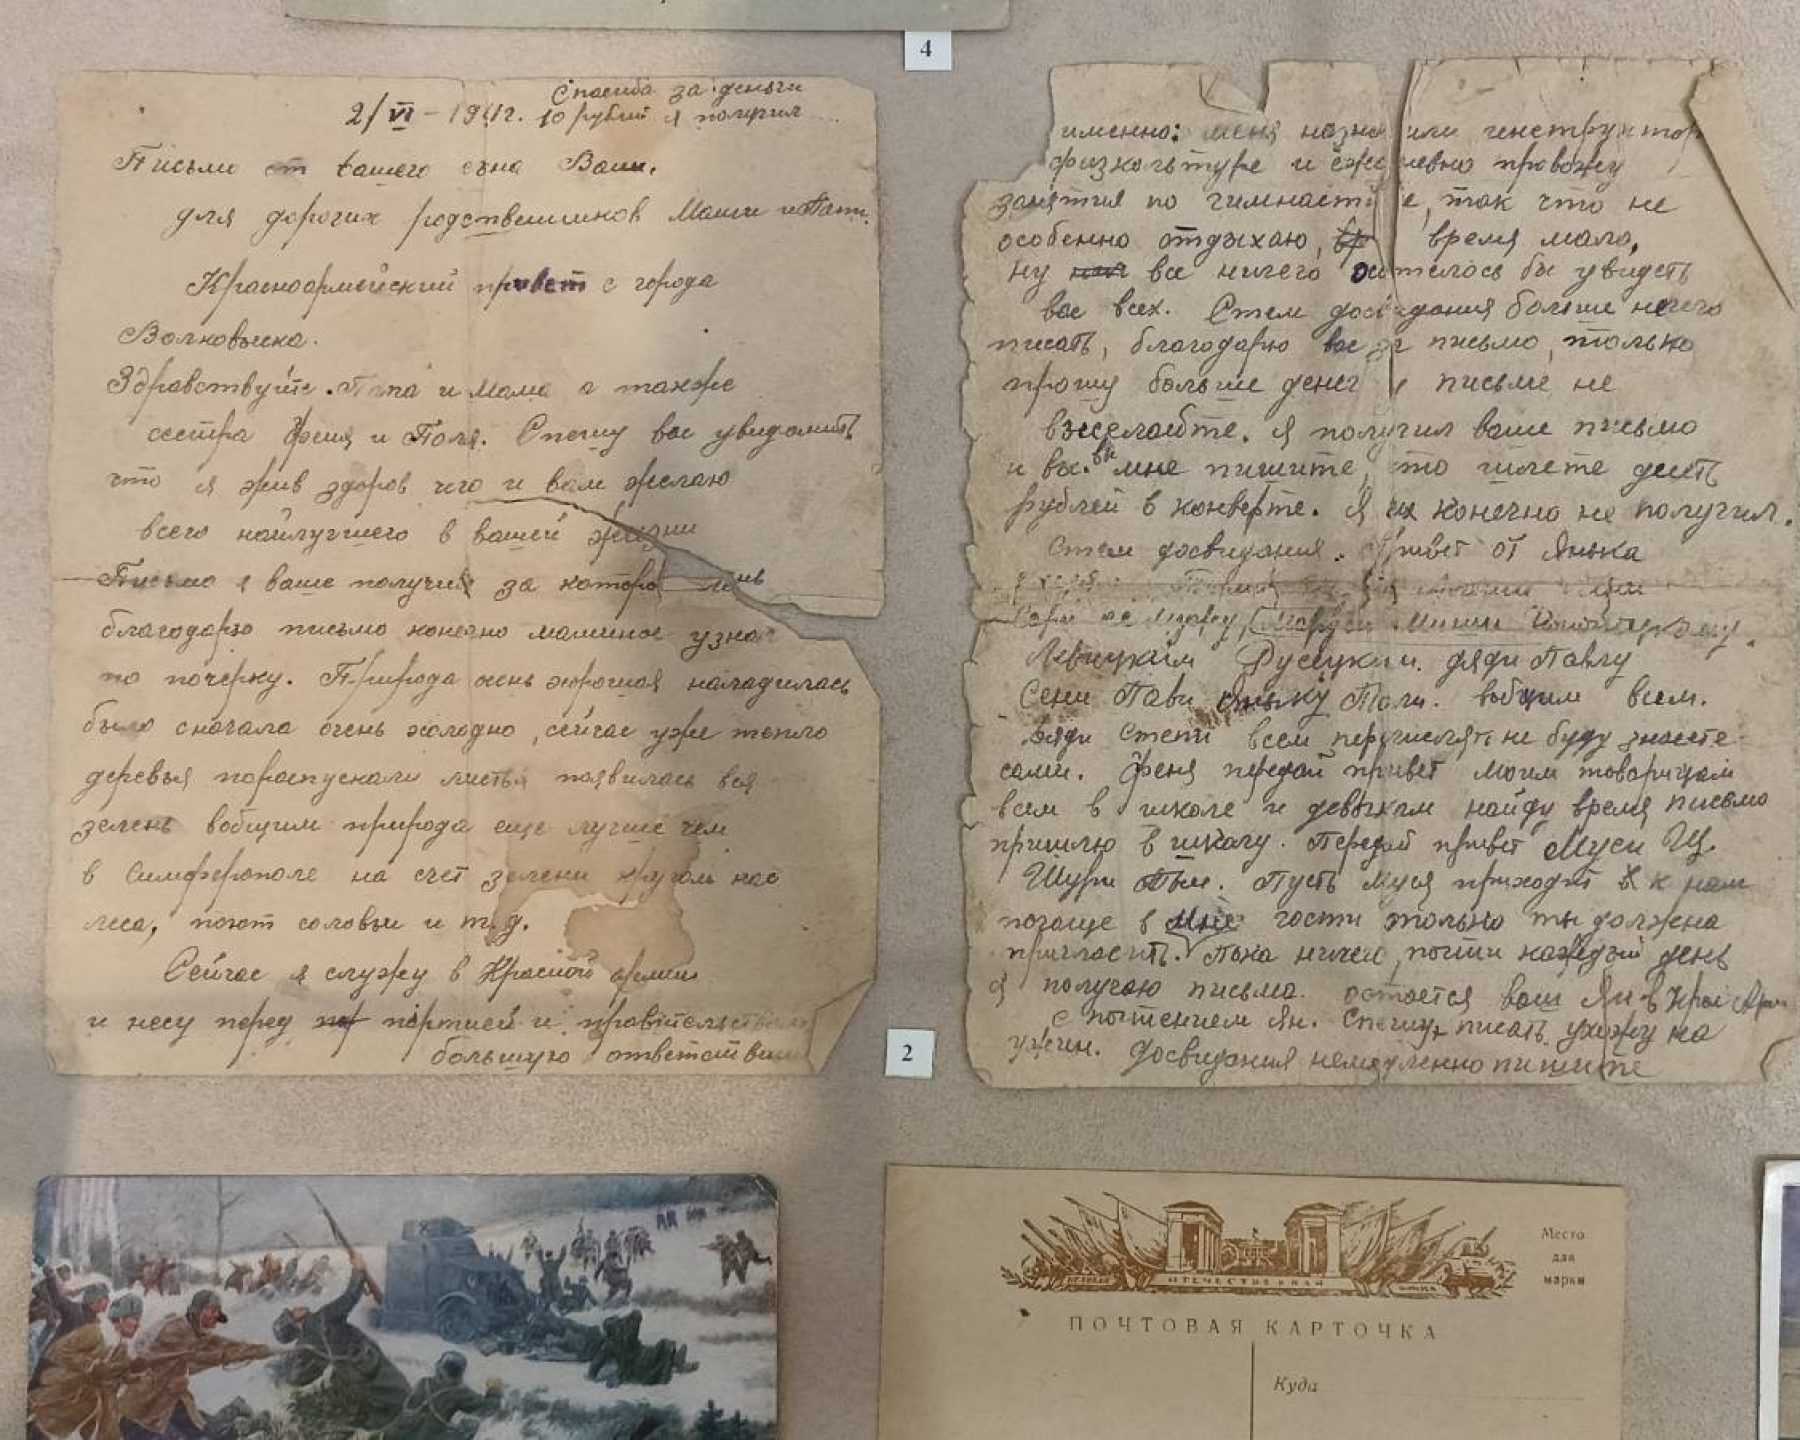 4
Спасиба за деньги
2/VI – 1941г. 10 рублей я получил
Письмо от вашего сына Вани.
для дорогих родственников Маши и
Красноармейский привет с города
Волковыска.
Здравствуйте. Папа и мама а также
сестра Феня и Поля. Спешу вас уведомить
что я жив здоров чего и вам желаю
всего наилучшего в вашей жизни
Письмо я ваше получил за
благодарю письмо конечно мамыное узнал
по почерку. Природа очень хорошая наладилась
было сначала очень холодно, сейчас уже тепло
деревья пораспускали листья появилась вся
зелень вобщим природа еще лучше чем
в Симферополе на счет зелени кругом нас
леса, поют соловьи и т.д.
Сейчас я служу в Красной армии
и несу перед партией и правительством
большую
именно: меня
физкультуре и провожу
занятия по так что не
особенно отдыхаю, время мало,
ну все ничего бы увидеть
вас всех. Стем досвидания больше нечего
писать, благодарю вас за письмо, только
прошу больше денег в письме не
Я получил ваше письмо
и вы мне пишите, что шлете десять
рублей в конверте. Я их конечно не получил.
Стем досвидания. Привет от Янька
дяди Павлу
Сени Поли. вобщим всем.
дяди Степи всем перечислять не буду знаете
сами. Феня передай привет моим товарищам
всем в школе и девочкам найду время письмо
пришлю в школу. Передай привет Муси Щ.
Шури Пусть Муся приходит к нам
почаще в гости только ты должна
пригласить. Пока ничего, почти каждый день
я получаю письма. остается ваш Ян в
с Ян. Спешу писать ухожу на
ужин. Досвидания немедленно пишите
2
ВЕЛИКАЯ ОТЕЧЕСТВЕННАЯ ВОЙНА
Место
для
марки
ПОЧТОВАЯ КАРТОЧКА
Куда